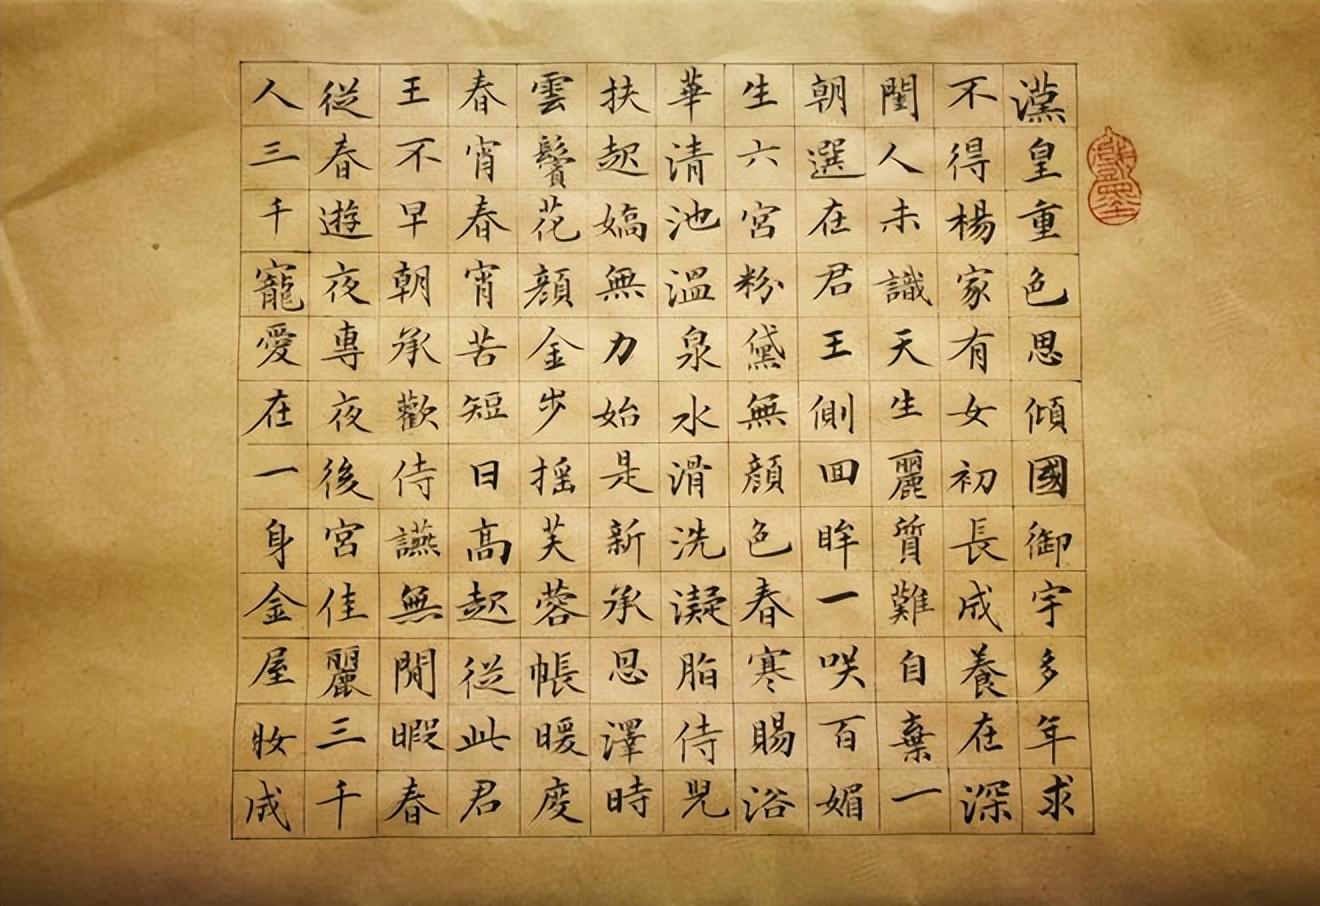 漢皇重色思傾國御宇多年求
不得楊家有女初長成養在深
閨人未識天生麗質難自棄一
朝選在君王側回眸一咲百媚
生六宮粉黛無顔色春寒賜浴
華清池溫泉水滑洗凝脂侍兒
扶起嬌無力始是新承恩澤時
雲鬢花顔金步搖芙蓉帳暖度
春宵春宵苦短日高起從此君
王不早朝承歡侍讌無閒暇春
從春遊夜專夜後宮佳麗三千
人三千寵愛在一身金屋妝成